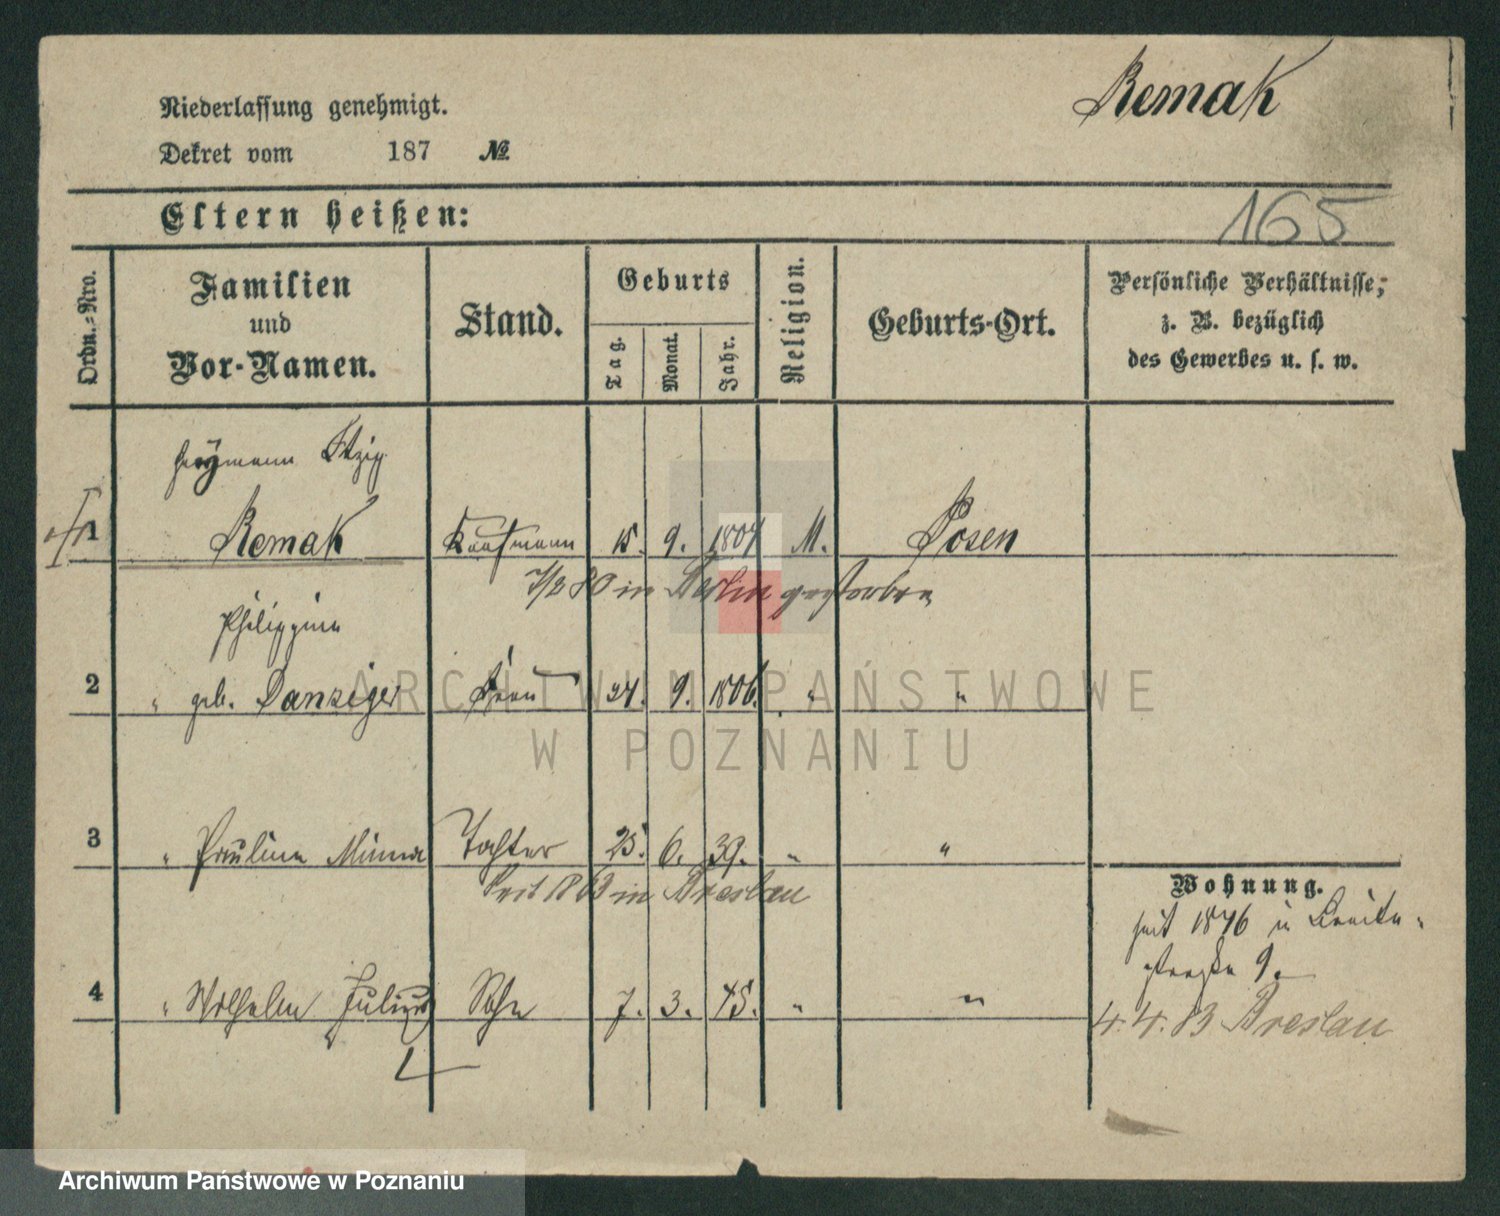 Remak
Niederlassung genehmigt.
Dekret vom 187 №
Eltern heißen:
165
Ordn.-Nro.
Familien
und
Vor-Namen.
Stand.
Geburts
Tag.
Monat.
Jahr.
Religion.
Geburts-Ort.
Persönliche Verhältnisse,
z. B. bezüglich
des Gewerbes u. s. w.
Heymann Itzig
1 Remak Kaufmann 15. 9. 1807 M. Posen
7/2 80 in Berlin gestorben
Philippine
2 " geb. Danziger Frau 24. 9. 1806. " "
3 " Pauline Minna Tochter 25. 6. 39. " "
Seit 1863 in Breslau
Wohnung.
seit 1876 in Breite-
straße 9.
4 " Wilhelm Julius Sohn 7. 3. 45. " "
4. 4. 83 Breslau
ARCHIWUM PAŃSTWOWE
W POZNANIU
Archiwum Państwowe w Poznaniu